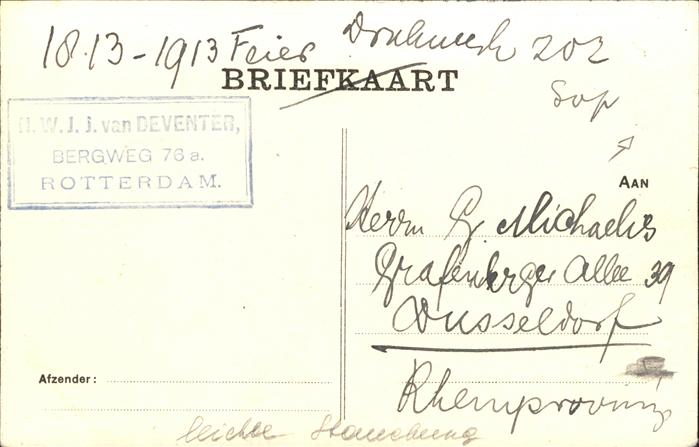 18.13-1913 Feier Drukwerk 202
BRIEFKAART
H. W. J. J. van DEVENTER,
BERGWEG 76a.
ROTTERDAM.
AAN
Herrn G. Michaelis
Grafenberger Allee 39
Dusseldorf
Rheinprovinz
Afzender:
leichte Stauchung